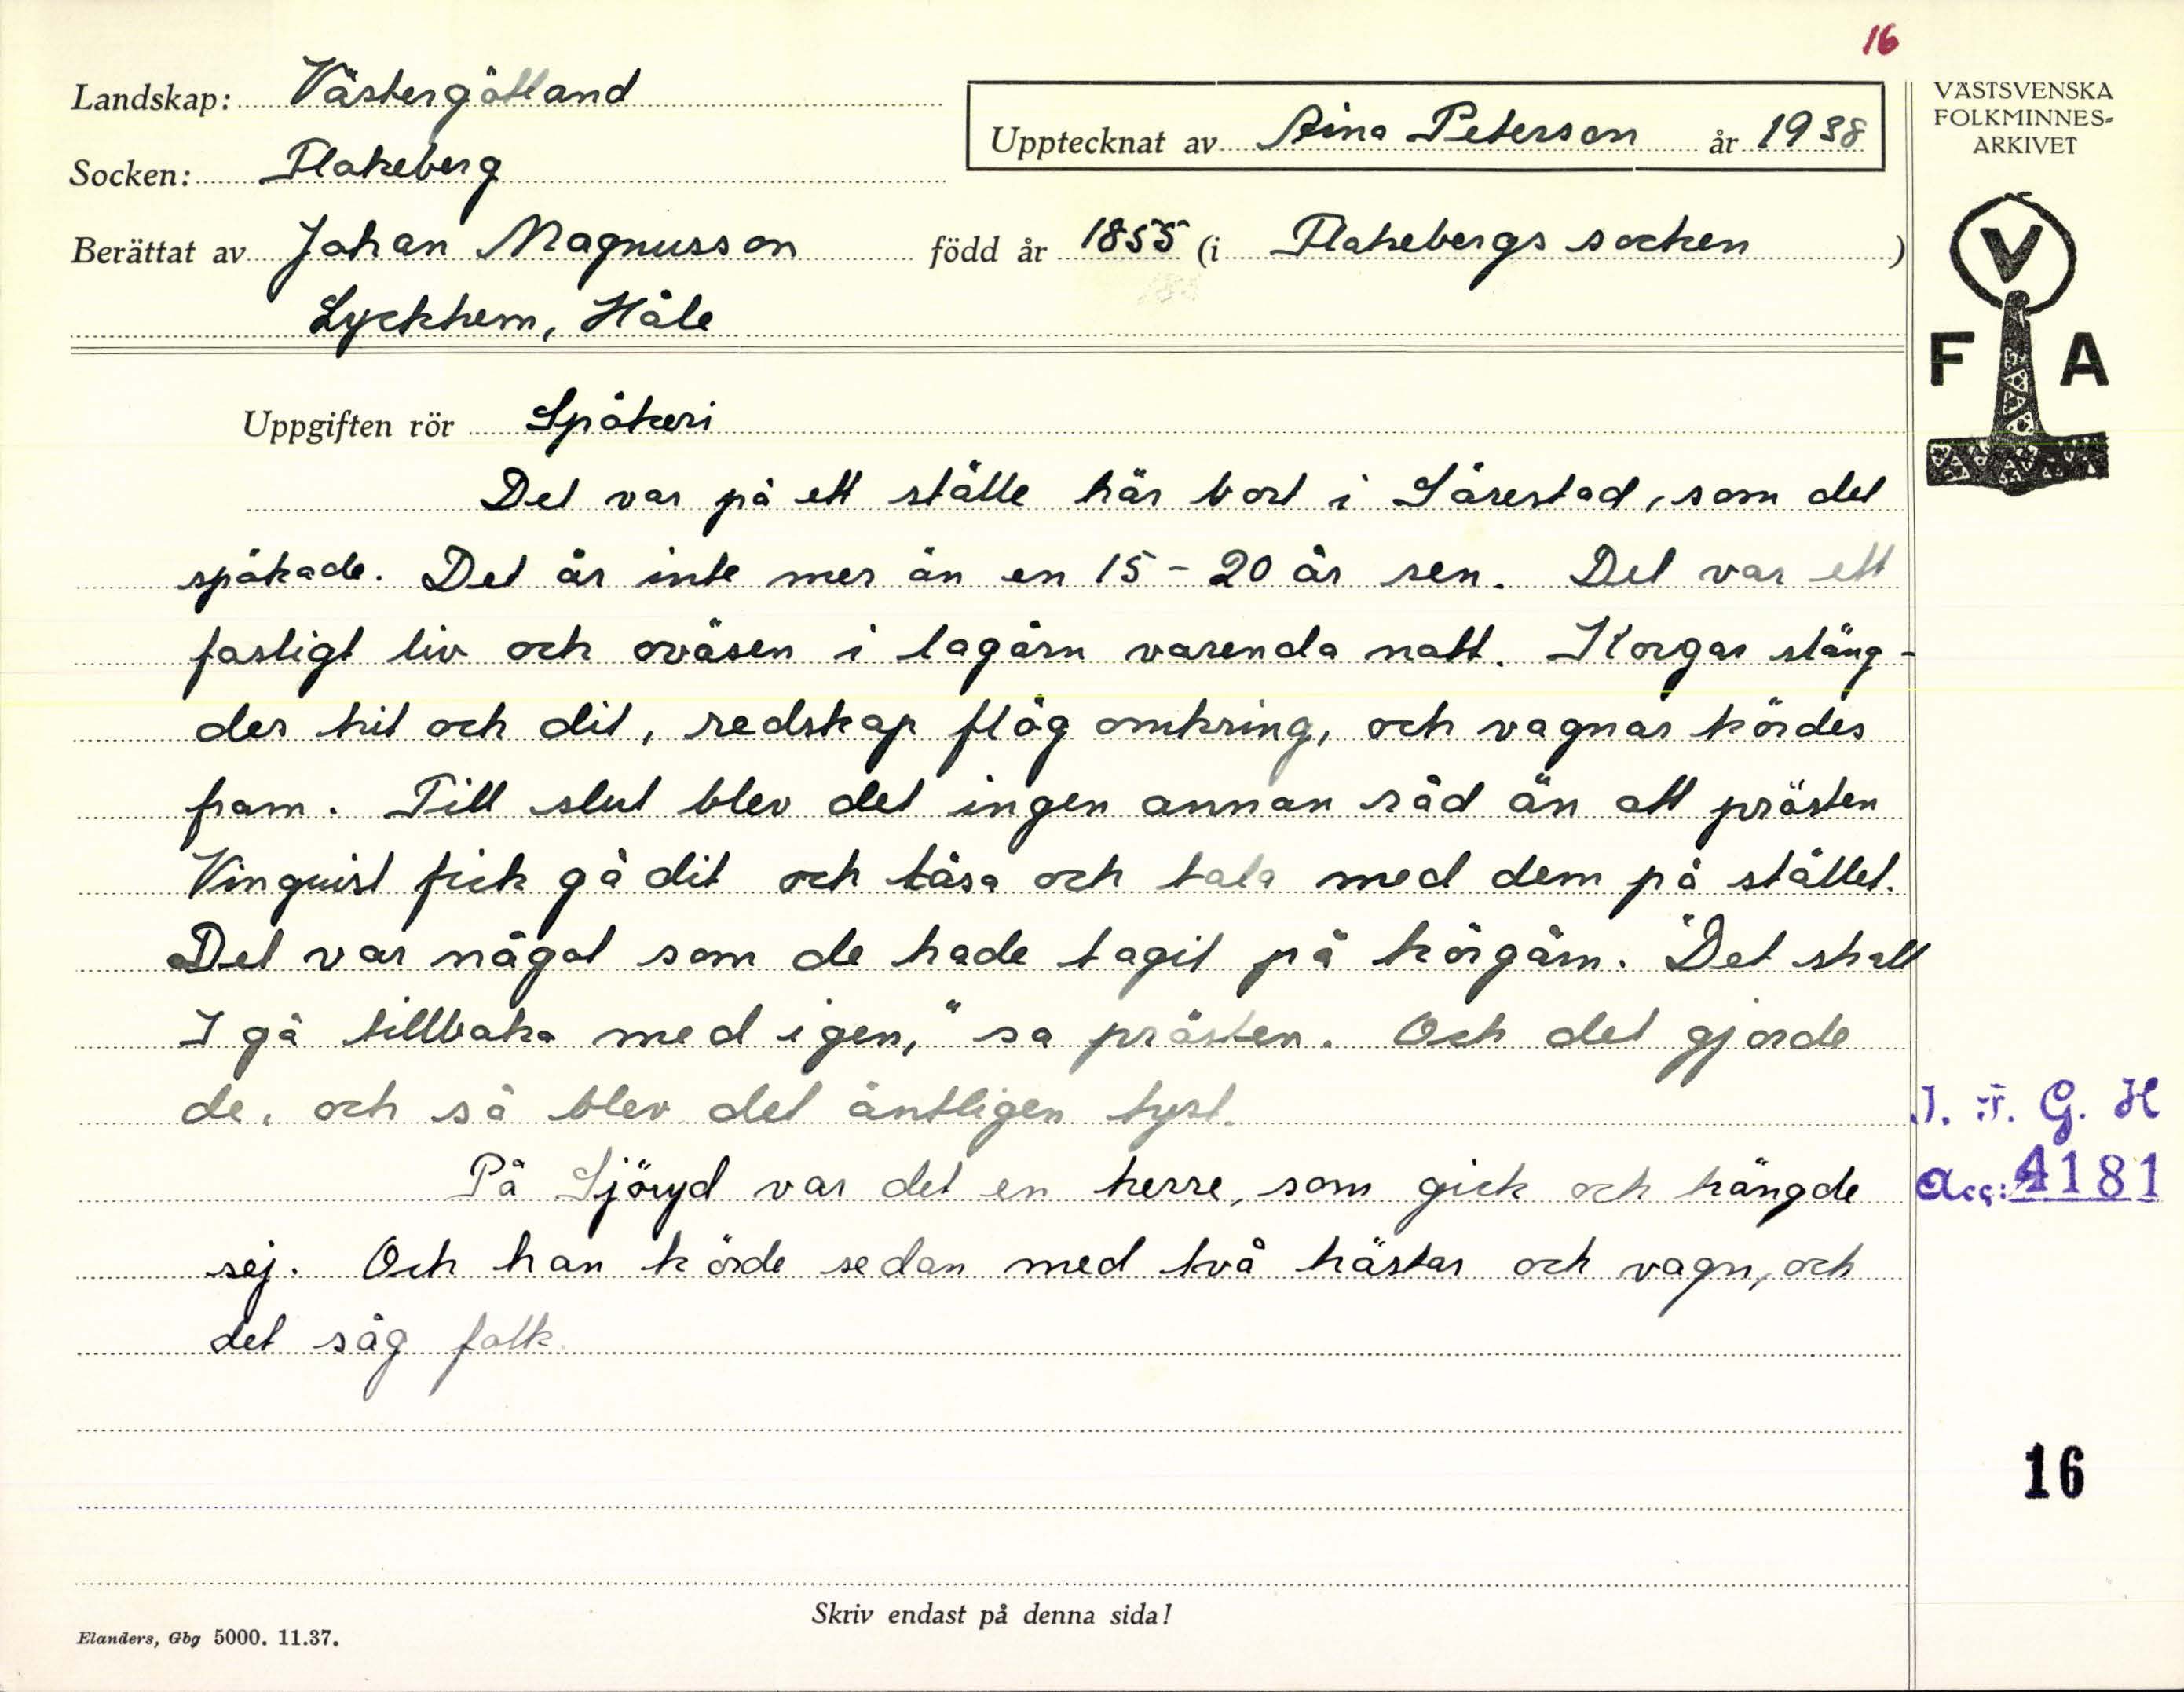 16
Landskap: Västergötland
Upptecknat av Aina Peterson år 1938
Socken: Flakeberg
Berättat av Johan Magnusson född år 1855 (i Flakebergs socken)
Lyckhem, Håle
VÄSTSVENSKA
FOLKMINNES-
ARKIVET
V
F A
Uppgiften rör Spökeri
Det var på ett ställe här bort i Särestad, som det
spökade. Det är inte mer än en 15-20 år sen. Det var ett
fasligt liv och oväsen i lagårn varenda natt. Korgar släng-
des hit och dit, redskap flög omkring, och vagnar kördes
fram. Till slut blev det ingen annan råd än att prästen
Vinquist fick gå dit och läsa och tala med dem på stället.
Det var något som de hade tagit på körgårn. "Det skall
I gå tillbaka med igen," sa prästen. Och det gjorde
de, och så blev det äntligen tyst.
På Sjöryd var det en herre, som gick och hängde
sej. Och han körde sedan med två hästar och vagn, och
det såg folk.
I. F. G. H
Acc: 4181
16
Skriv endast på denna sida!
Elanders, Gbg 5000. 11.37.